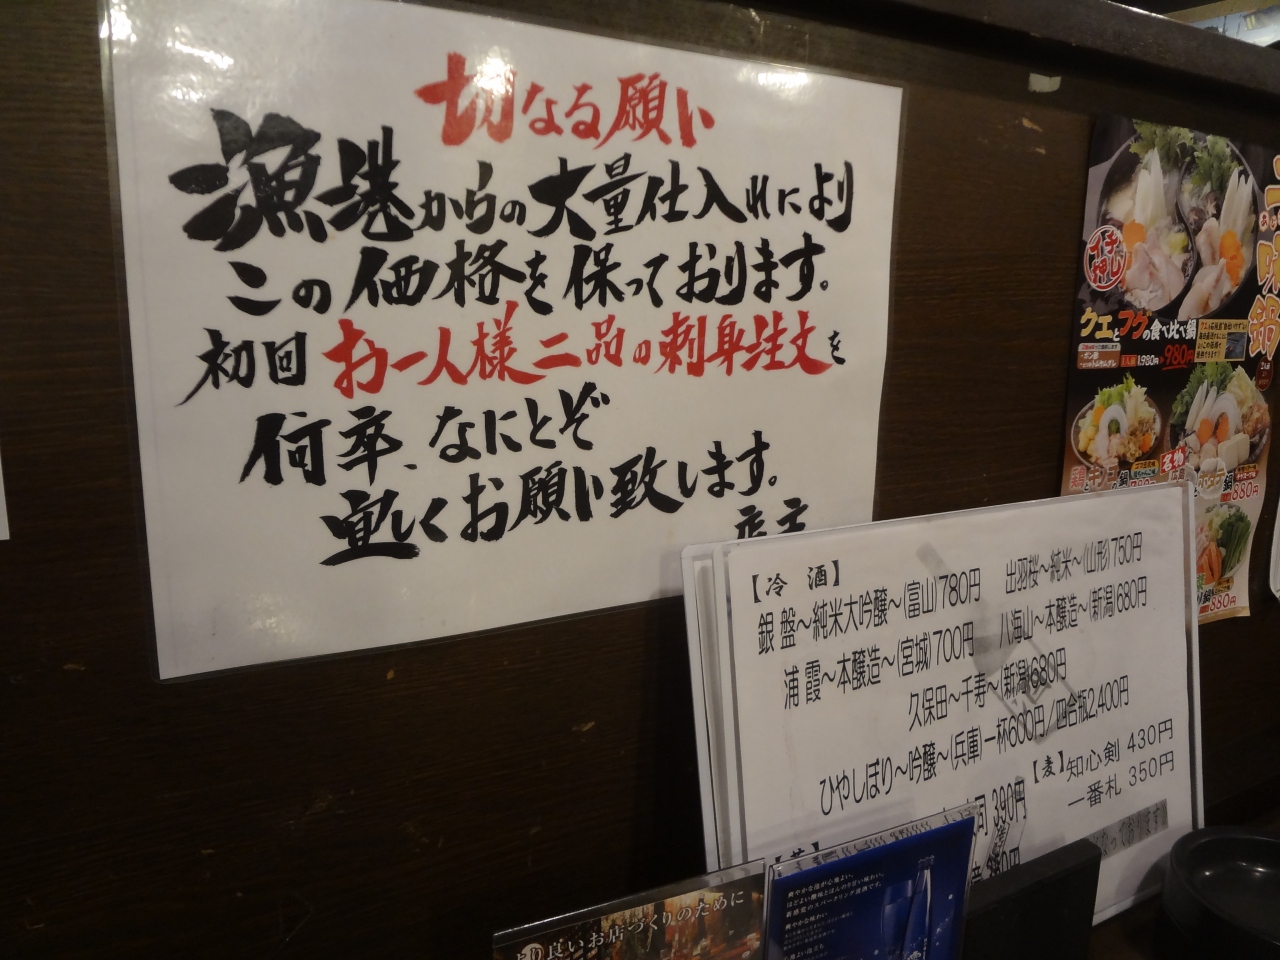 切なる願い
漁港からの大量仕入れにより
この価格を保っております。
初回お一人様二品の刺身注文を
何卒、なにとぞ
重しくお願い致します。
店主
イチ押し
クエとフグの食べ比べ鍋
1,980円
980円
名物
880円
880円
【冷酒】
銀盤〜純米大吟醸〜(富山)780円 出羽桜〜純米〜(山形)750円
浦霞〜本醸造〜(宮城)700円 八海山〜本醸造〜(新潟)680円
久保田〜千寿〜(新潟)680円
ひやしぼり〜吟醸〜(兵庫)一杯600円/四合瓶2,400円
390円 【麦】知心剣 430円
一番札 350円
なっております
爽やかな泡が心地よい、
爽やかな味わい
より良いお店づくりのために